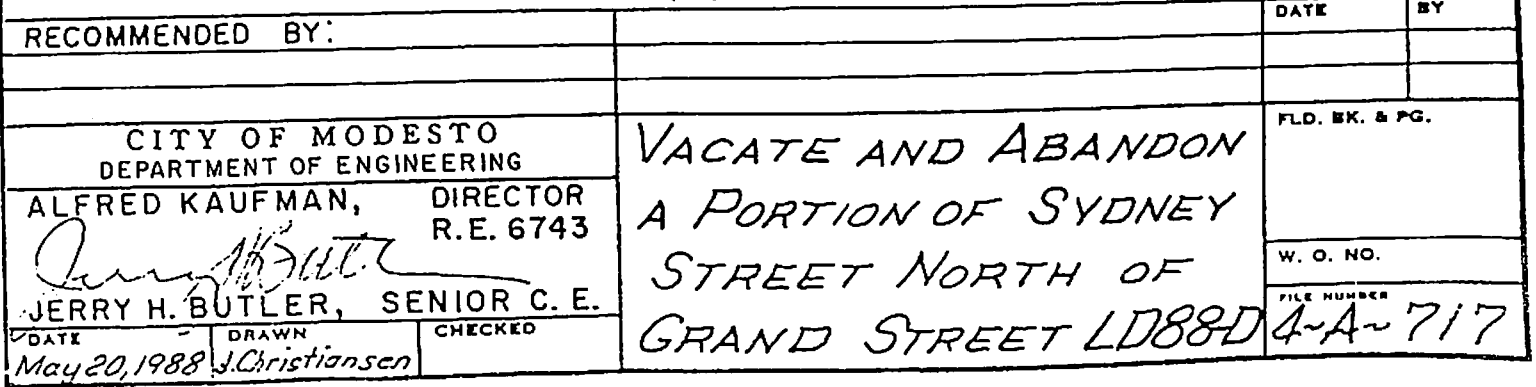 DATE BY
RECOMMENDED BY:
CITY OF MODESTO
DEPARTMENT OF ENGINEERING
ALFRED KAUFMAN, DIRECTOR
R.E. 6743
JERRY H. BUTLER, SENIOR C. E.
DATE DRAWN CHECKED
May 20, 1988 J. Christiansen
VACATE AND ABANDON
A PORTION OF SYDNEY
STREET NORTH OF
GRAND STREET LD88-D
FLD. BK. & PG.
W. O. NO.
FILE NUMBER
4-A-717